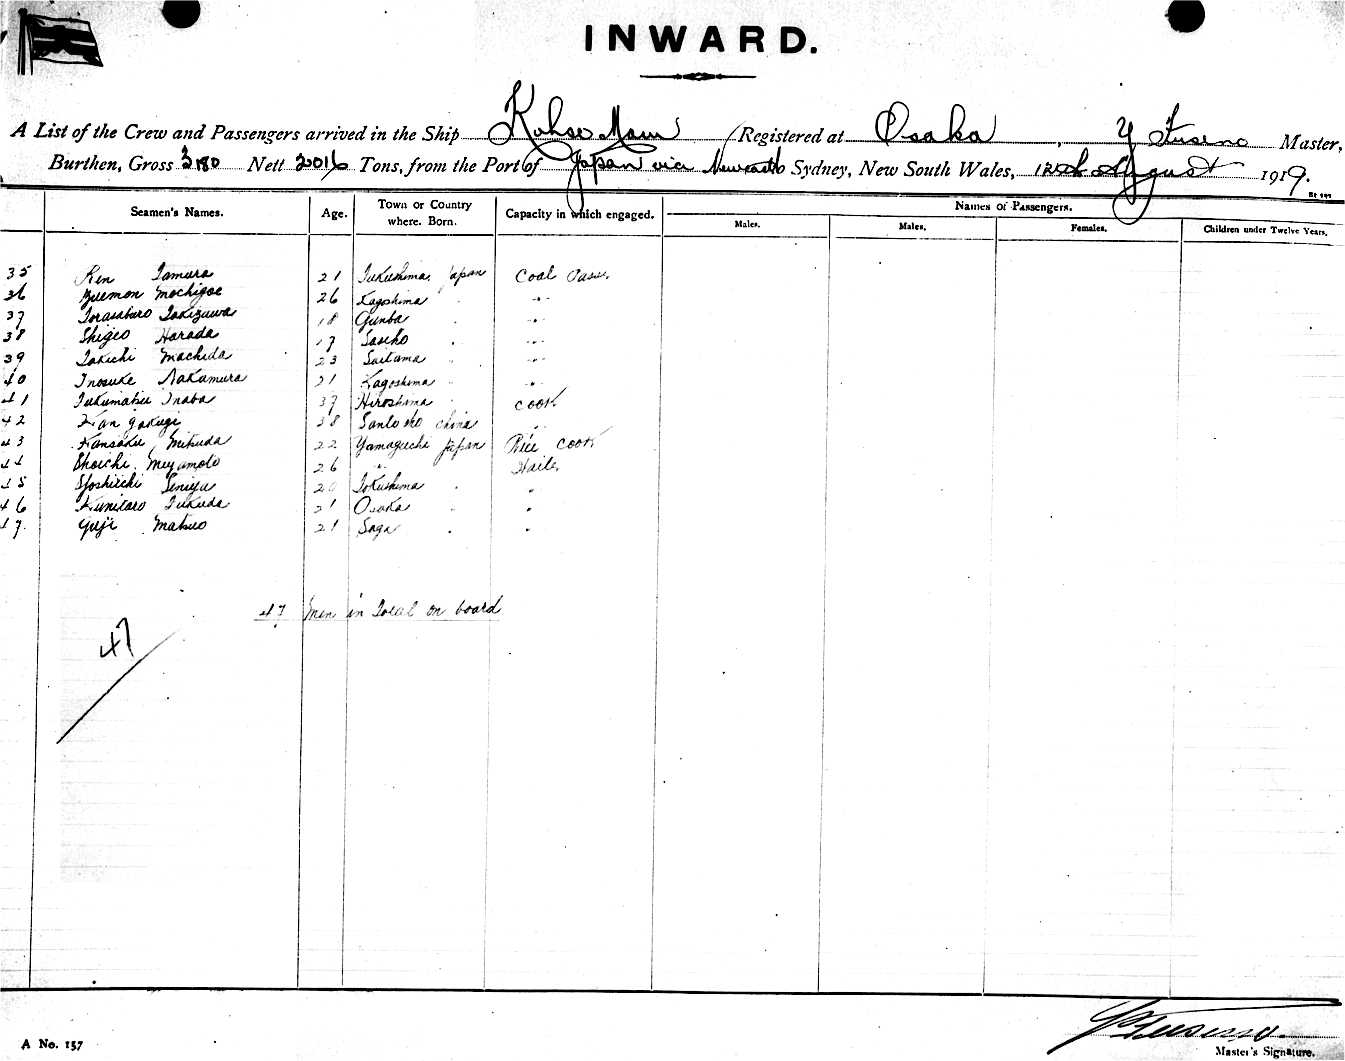 INWARD.
A List of the Crew and Passengers arrived in the Ship Kohso Maru (Registered at Osaka, Y Fuseno Master,
Burthen, Gross 3180 Nett 2016 Tons, from the Port of Japan via Newcastle Sydney, New South Wales, 12th August 1919.
Seamen's Names. Age. Town or Country where Born. Capacity in which engaged. Names of Passengers.
Males. Males. Females. Children under Twelve Years.
35 Ken Tamura 21 Fukushima Japan Coal Pass.
36 Mochigoe 26 Kagoshima " -"-
37 Torasaburo Takizawa 18 Gunba " -"-
38 Shigeo Harada 17 Saseho " -"-
39 Takichi Machida 23 Saitama " -"-
40 Inosuke Nakamura 21 Kagoshima " -"-
41 Fukumatsu Inaba 37 Hiroshima " Cook
42 38 China "
43 Kansaku Mikuda 22 Yamaguchi Japan Rice Cook
44 Shoichi Miyamoto 26 "
45 Yoshiichi 20 Tokushima " "
46 Kunitaro Fukuda 21 Osaka " "
47. Yuji Matsuo 21 Saga " "
47 Men in Total on board
47
A No. 157
Y Fuseno.
Master's Signature.